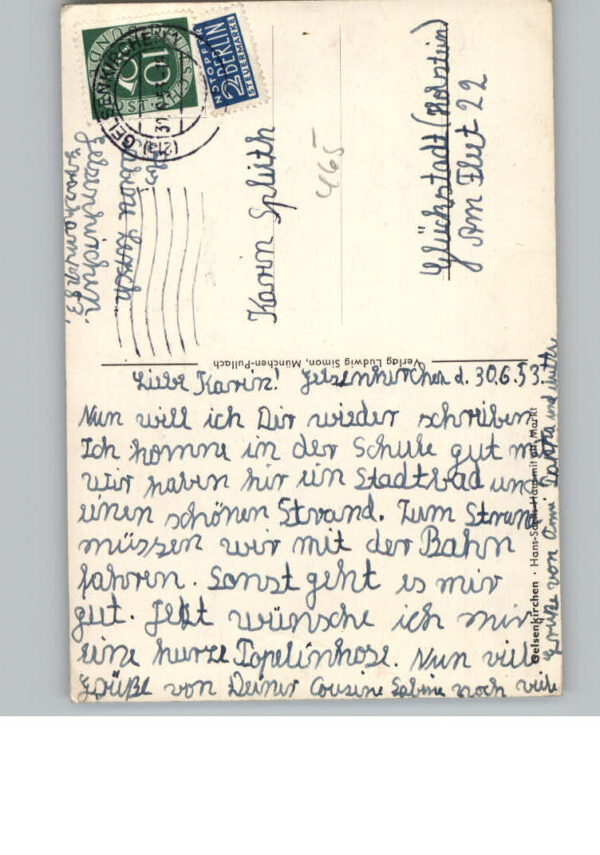 DEUTSCHE BUNDESPOST
10
NOTOPFER
2 BERLIN
STEUERMARKE
(21a) GELSENKIRCHEN
Gelsenkirchen
Karin Splieth
465
Glückstadt (Holstein)
Am Fleet 22
Verlag Ludwig Simon, München-Pullach
Gelsenkirchen · Hans-Sachs-Haus mit alt. Markt
Liebe Karin! Gelsenkirchen d. 30.6.53.
Nun will ich Dir wieder schreiben
Ich komme in der Schule gut m
Wir haben hir ein Stadtbad und
einen schönen Strand. Zum Strand
müssen wir mit der Bahn
fahren. Sonst geht es mir
gut. Jetzt wünsche ich mir
eine kurze Popelinhose. Nun viele
Grüße von Deiner Cousine Sabine noch viele
Grüße von Omi Tanta und